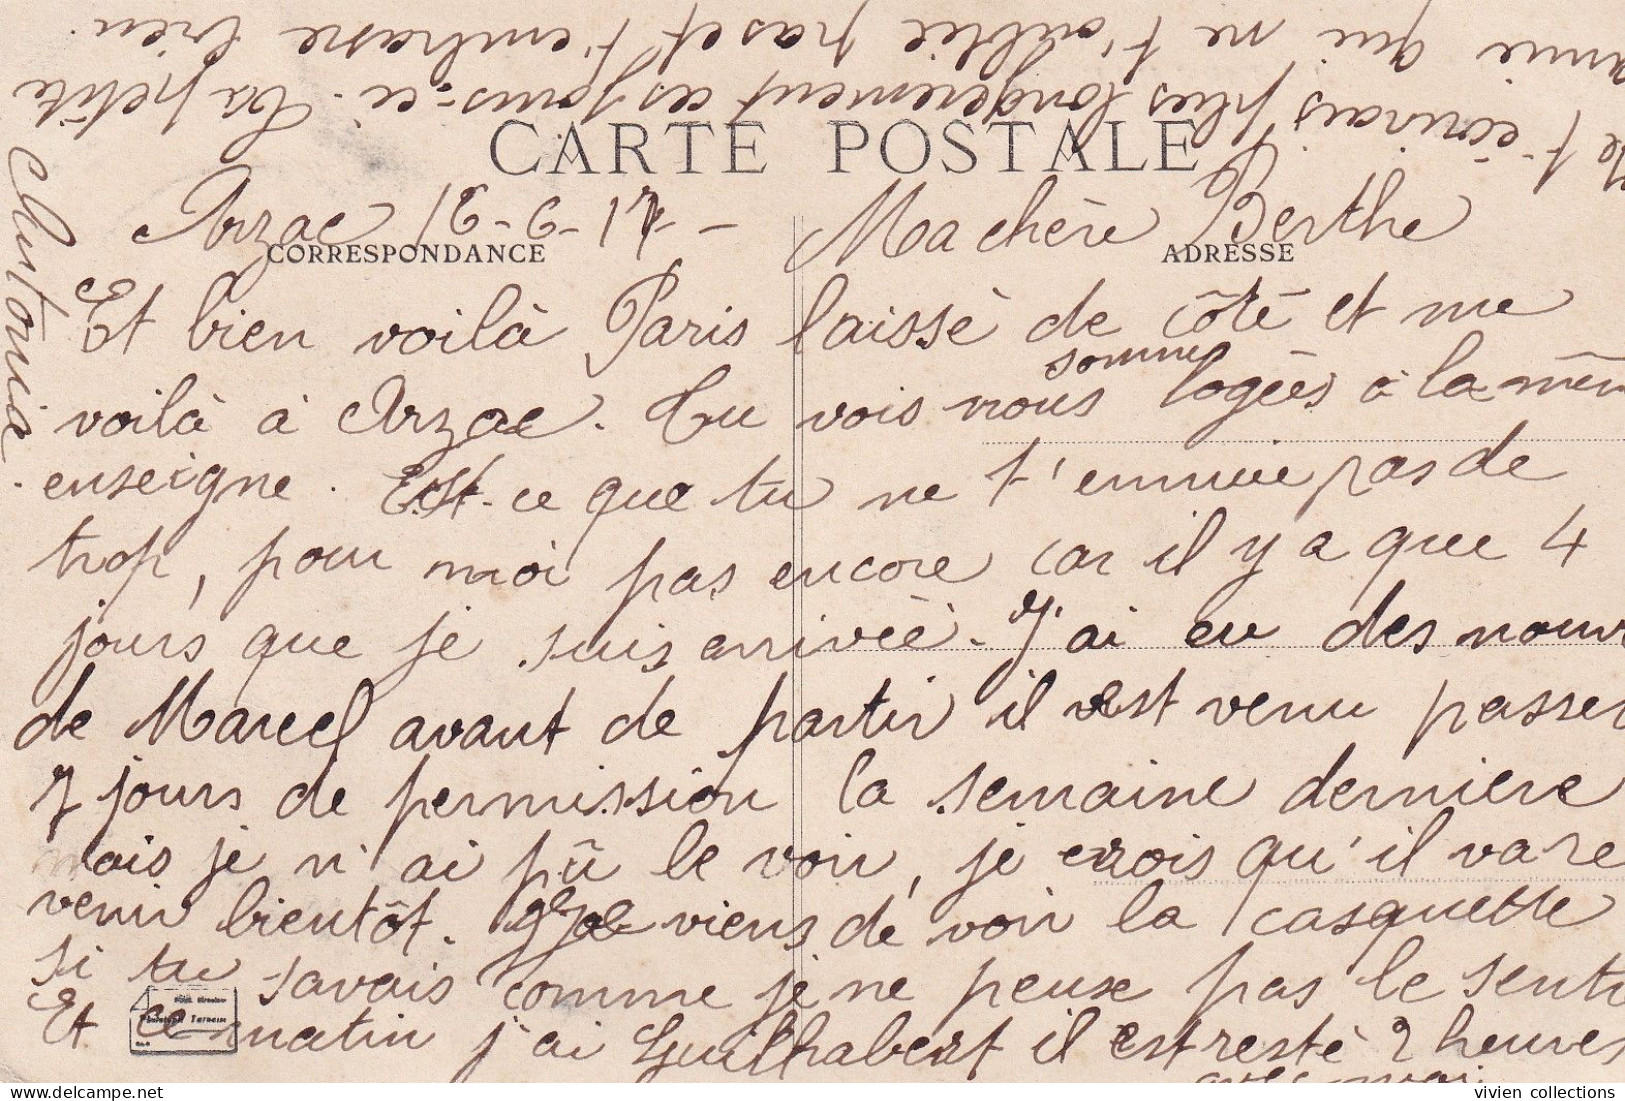 CARTE POSTALE
CORRESPONDANCE
ADRESSE
Arzac 12-9-17- Ma chère Berthe
Et bien voilà Paris laissé de côté et me
voilà à Arzac. Tu vois nous sommes logées à la mêm
enseigne. Est-ce que tu ne t'ennuie pas de
trop, pour moi pas encore car il y a que 4
jours que je suis arrivée. J'ai eu des nouv
de Marcel avant de partir il est venu passer
7 jours de permission la semaine derniere
mais je n'ai pû le voir, je crois qu'il va re
venir bientôt. Je viens de voir la casquette
si tu savais comme je ne peux pas le senti
Et ce matin j'ai Guilhabert il est resté 2 heures
avec moi.
Je t'écrirais plus longuement ces jours-ci. Ta petite
amie qui ne t'oublie pas et t'embrasse bien.
Antonia
vivien collections